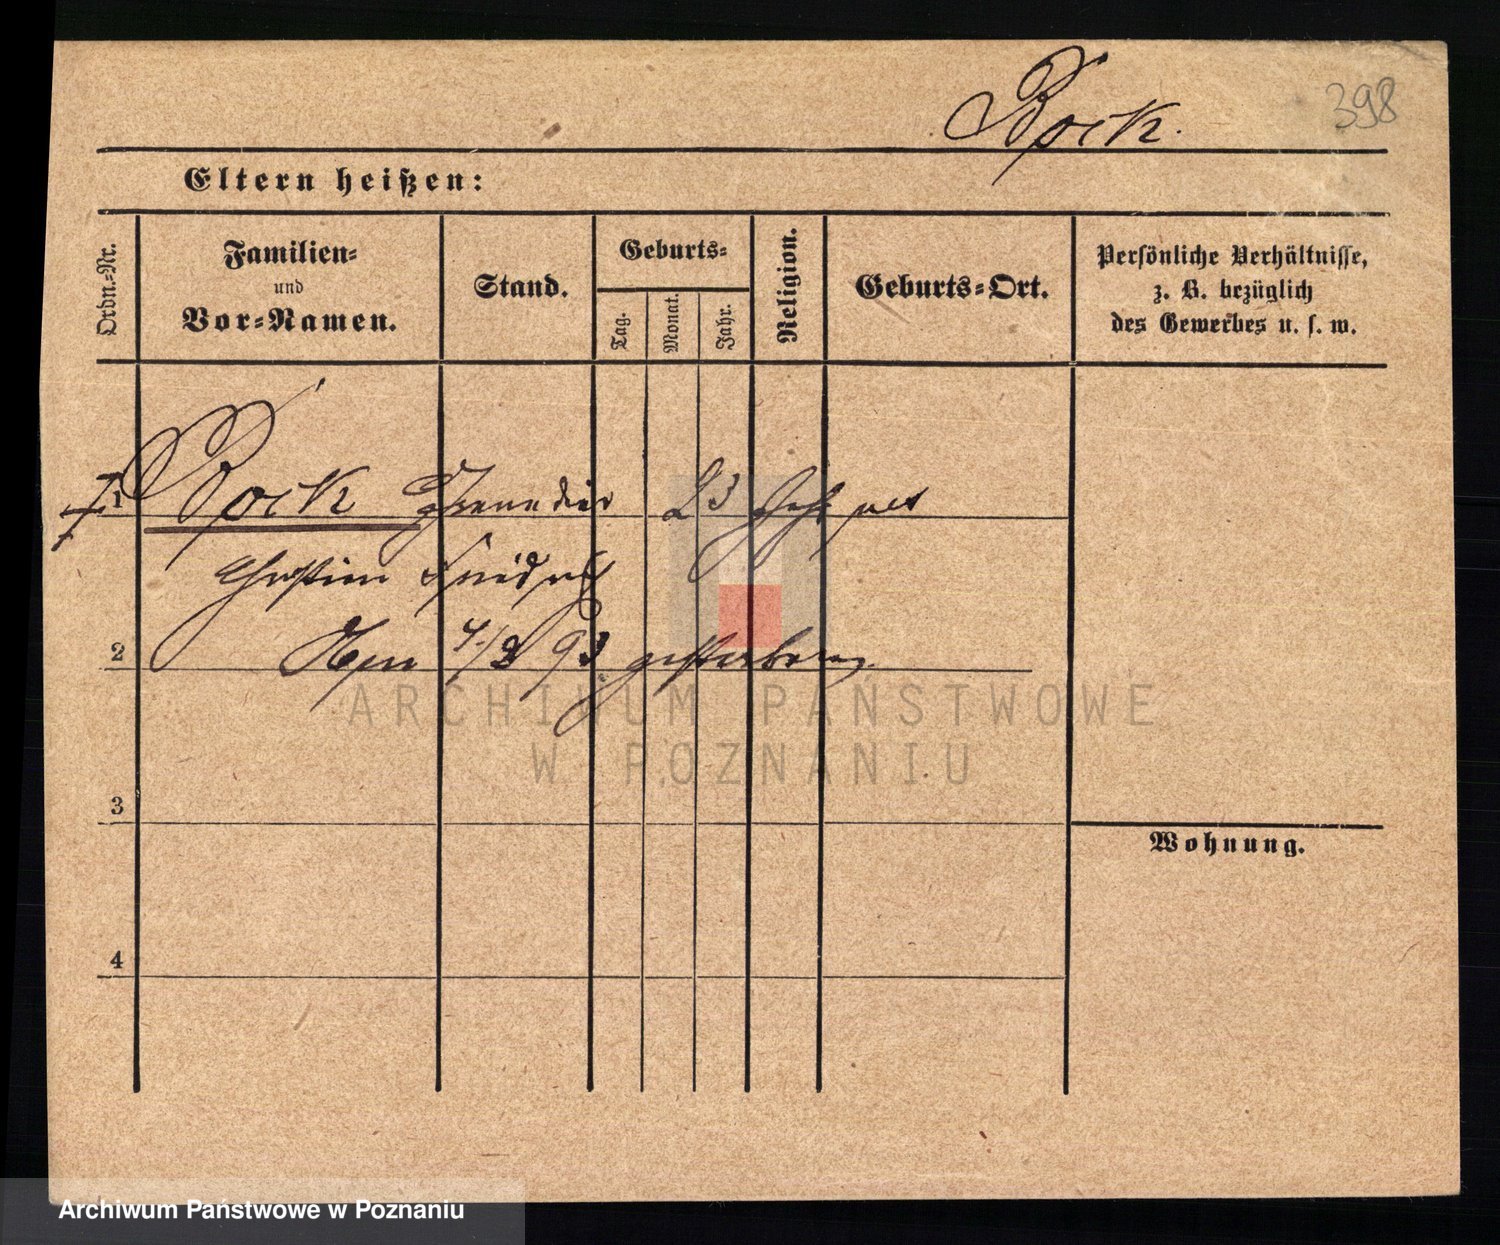 Bock.
398
Eltern heißen:
Ordn.-Nr.
Familien-
und
Vor-Namen.
Stand.
Geburts-
Tag.
Monat.
Jahr.
Religion.
Geburts-Ort.
Persönliche Verhältnisse,
z. B. bezüglich
des Gewerbes u. s. w.
1 Bock Grenadier 23 Jahr alt
Christian Friedrich
2 4/3 93 gestorben.
3
4
Wohnung.
ARCHIWUM PAŃSTWOWE
W POZNANIU
Archiwum Państwowe w Poznaniu